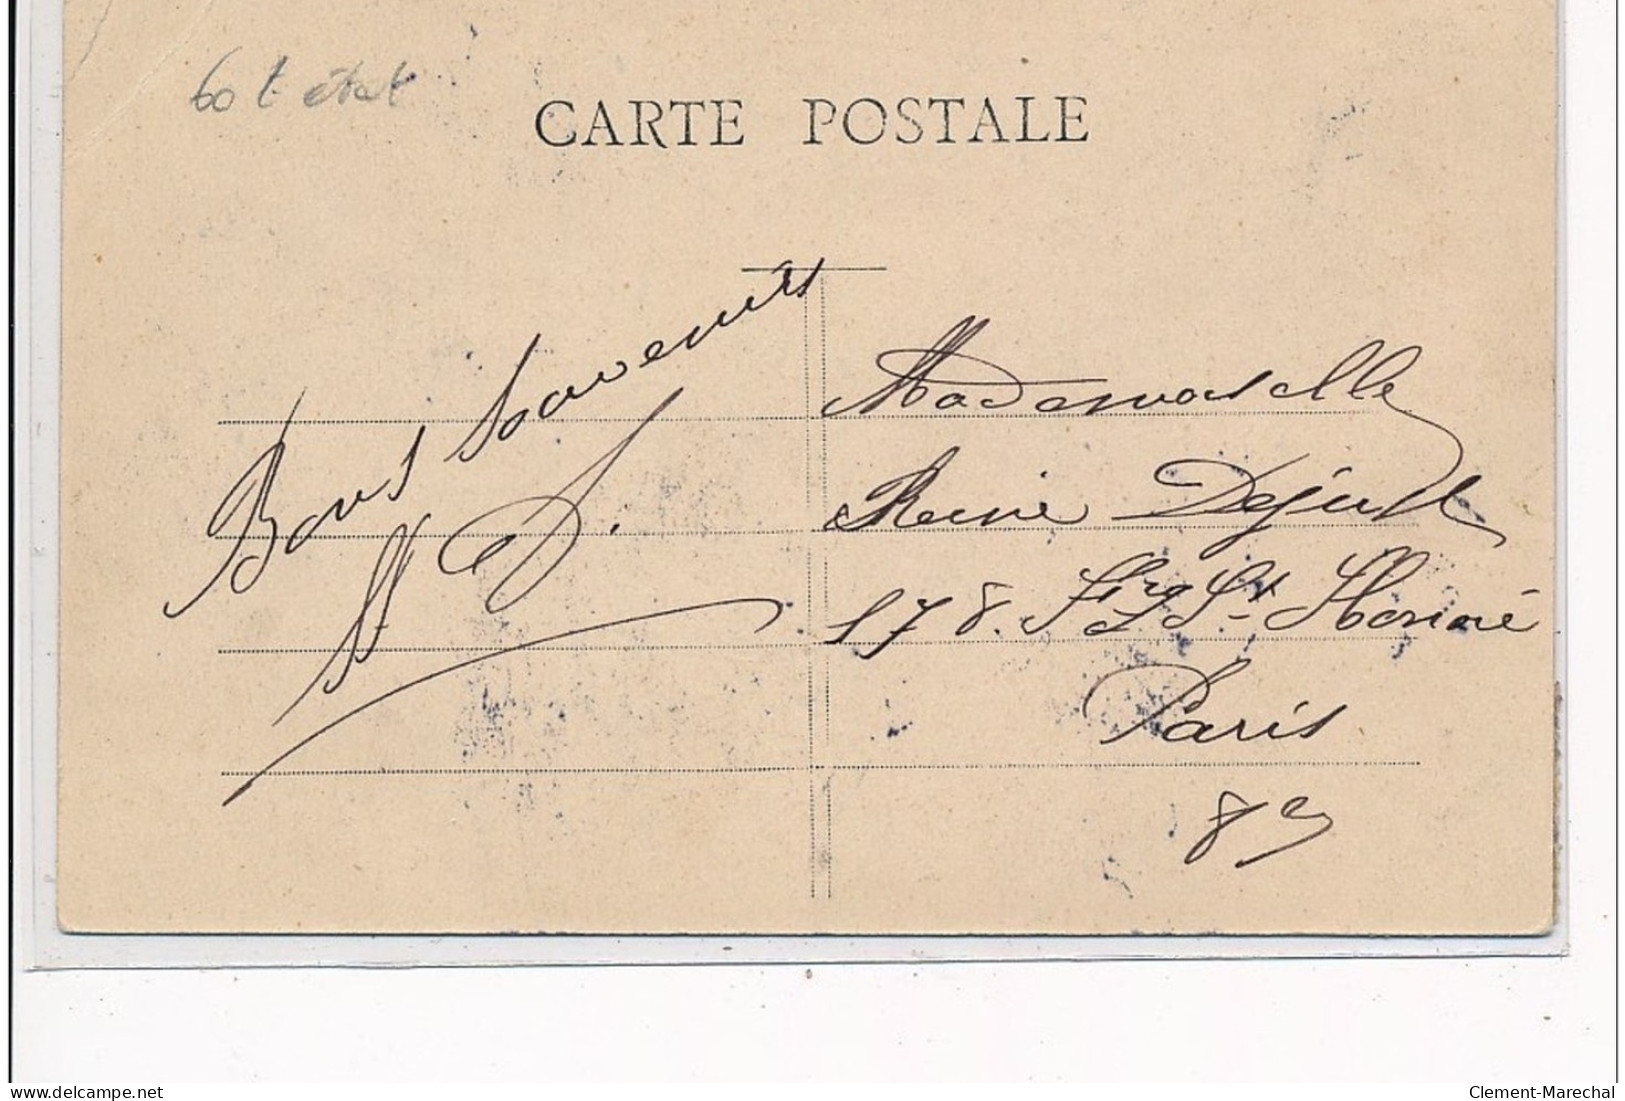 60 t état
CARTE POSTALE
Bons Souvenirs
Mademoiselle
Reine
178. Fg St Honoré
Paris
8e
www.delcampe.net
Clement-Marechal